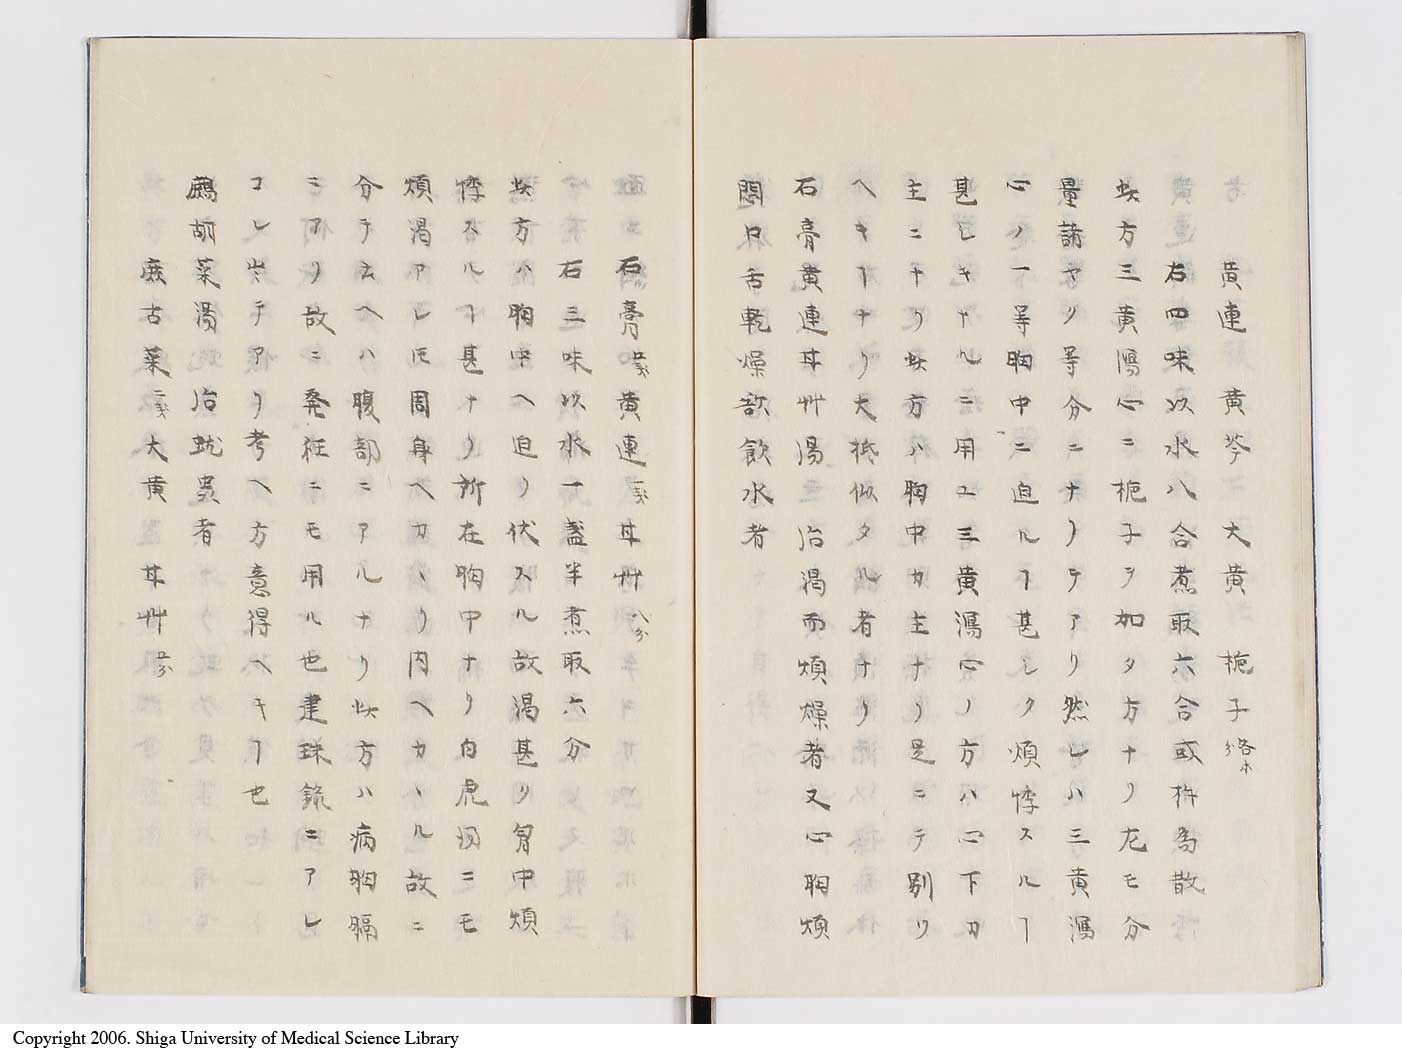 黄連 黄芩 大黄 梔子各等分
右四味以水八合煮取六合或杵為散
此方三黄瀉心ニ梔子ヲ加タ方ナリ尤モ分
量諸ヤノ等分ニナリテアリ然レハ三黄瀉
心ノ一等胸中ニ迫ルヿ甚シク煩悸スルヿ
甚シキナルニ用ユ三黄瀉心ノ方ハ心下カ
主ニナリ此方ハ胸中カ主ナリ是ニテ別ツ
ヘキヿナリ大抵似タル者ナリ
石膏黄連甘艸湯治渇而煩燥者又心胸煩
悶口舌乾燥欲飲水者
石膏五戔黄連一戔甘艸八分
右三味以水一盞半煮取六分
此方ハ胸中ヘ迫リ伏スル故渇甚シク胷中煩
悸スルヿ甚ナリ所在胸中ナリ白虎湯ニモ
煩渇アレ𪜈周身ヘカヽリ内ヘカヽル故ニ
分テ云ヘハ腹部ニアルナリ此方ハ病胸膈
ニアリ故ニ発狂ニモ用ル也建珠録ニアレ
コレ出テアリ考ヘ方意得ヘキヿ也
鷓胡菜湯治蚘蟲者
鹿古菜二戔大黄 甘艸五分